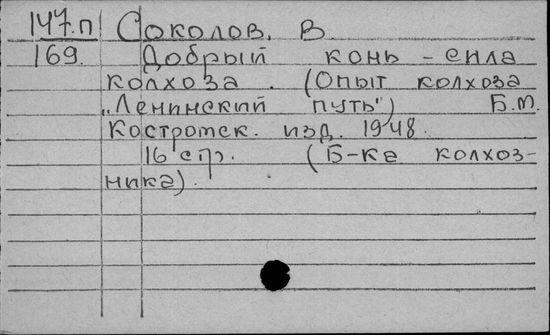 147.п Соколов, В.
169. Добрый конь – сила
колхоза. (Опыт колхоза
„Ленинский путь") Б.м.
Костромск. изд. 1948.
16 стр. (Б-ка колхоз-
ника).